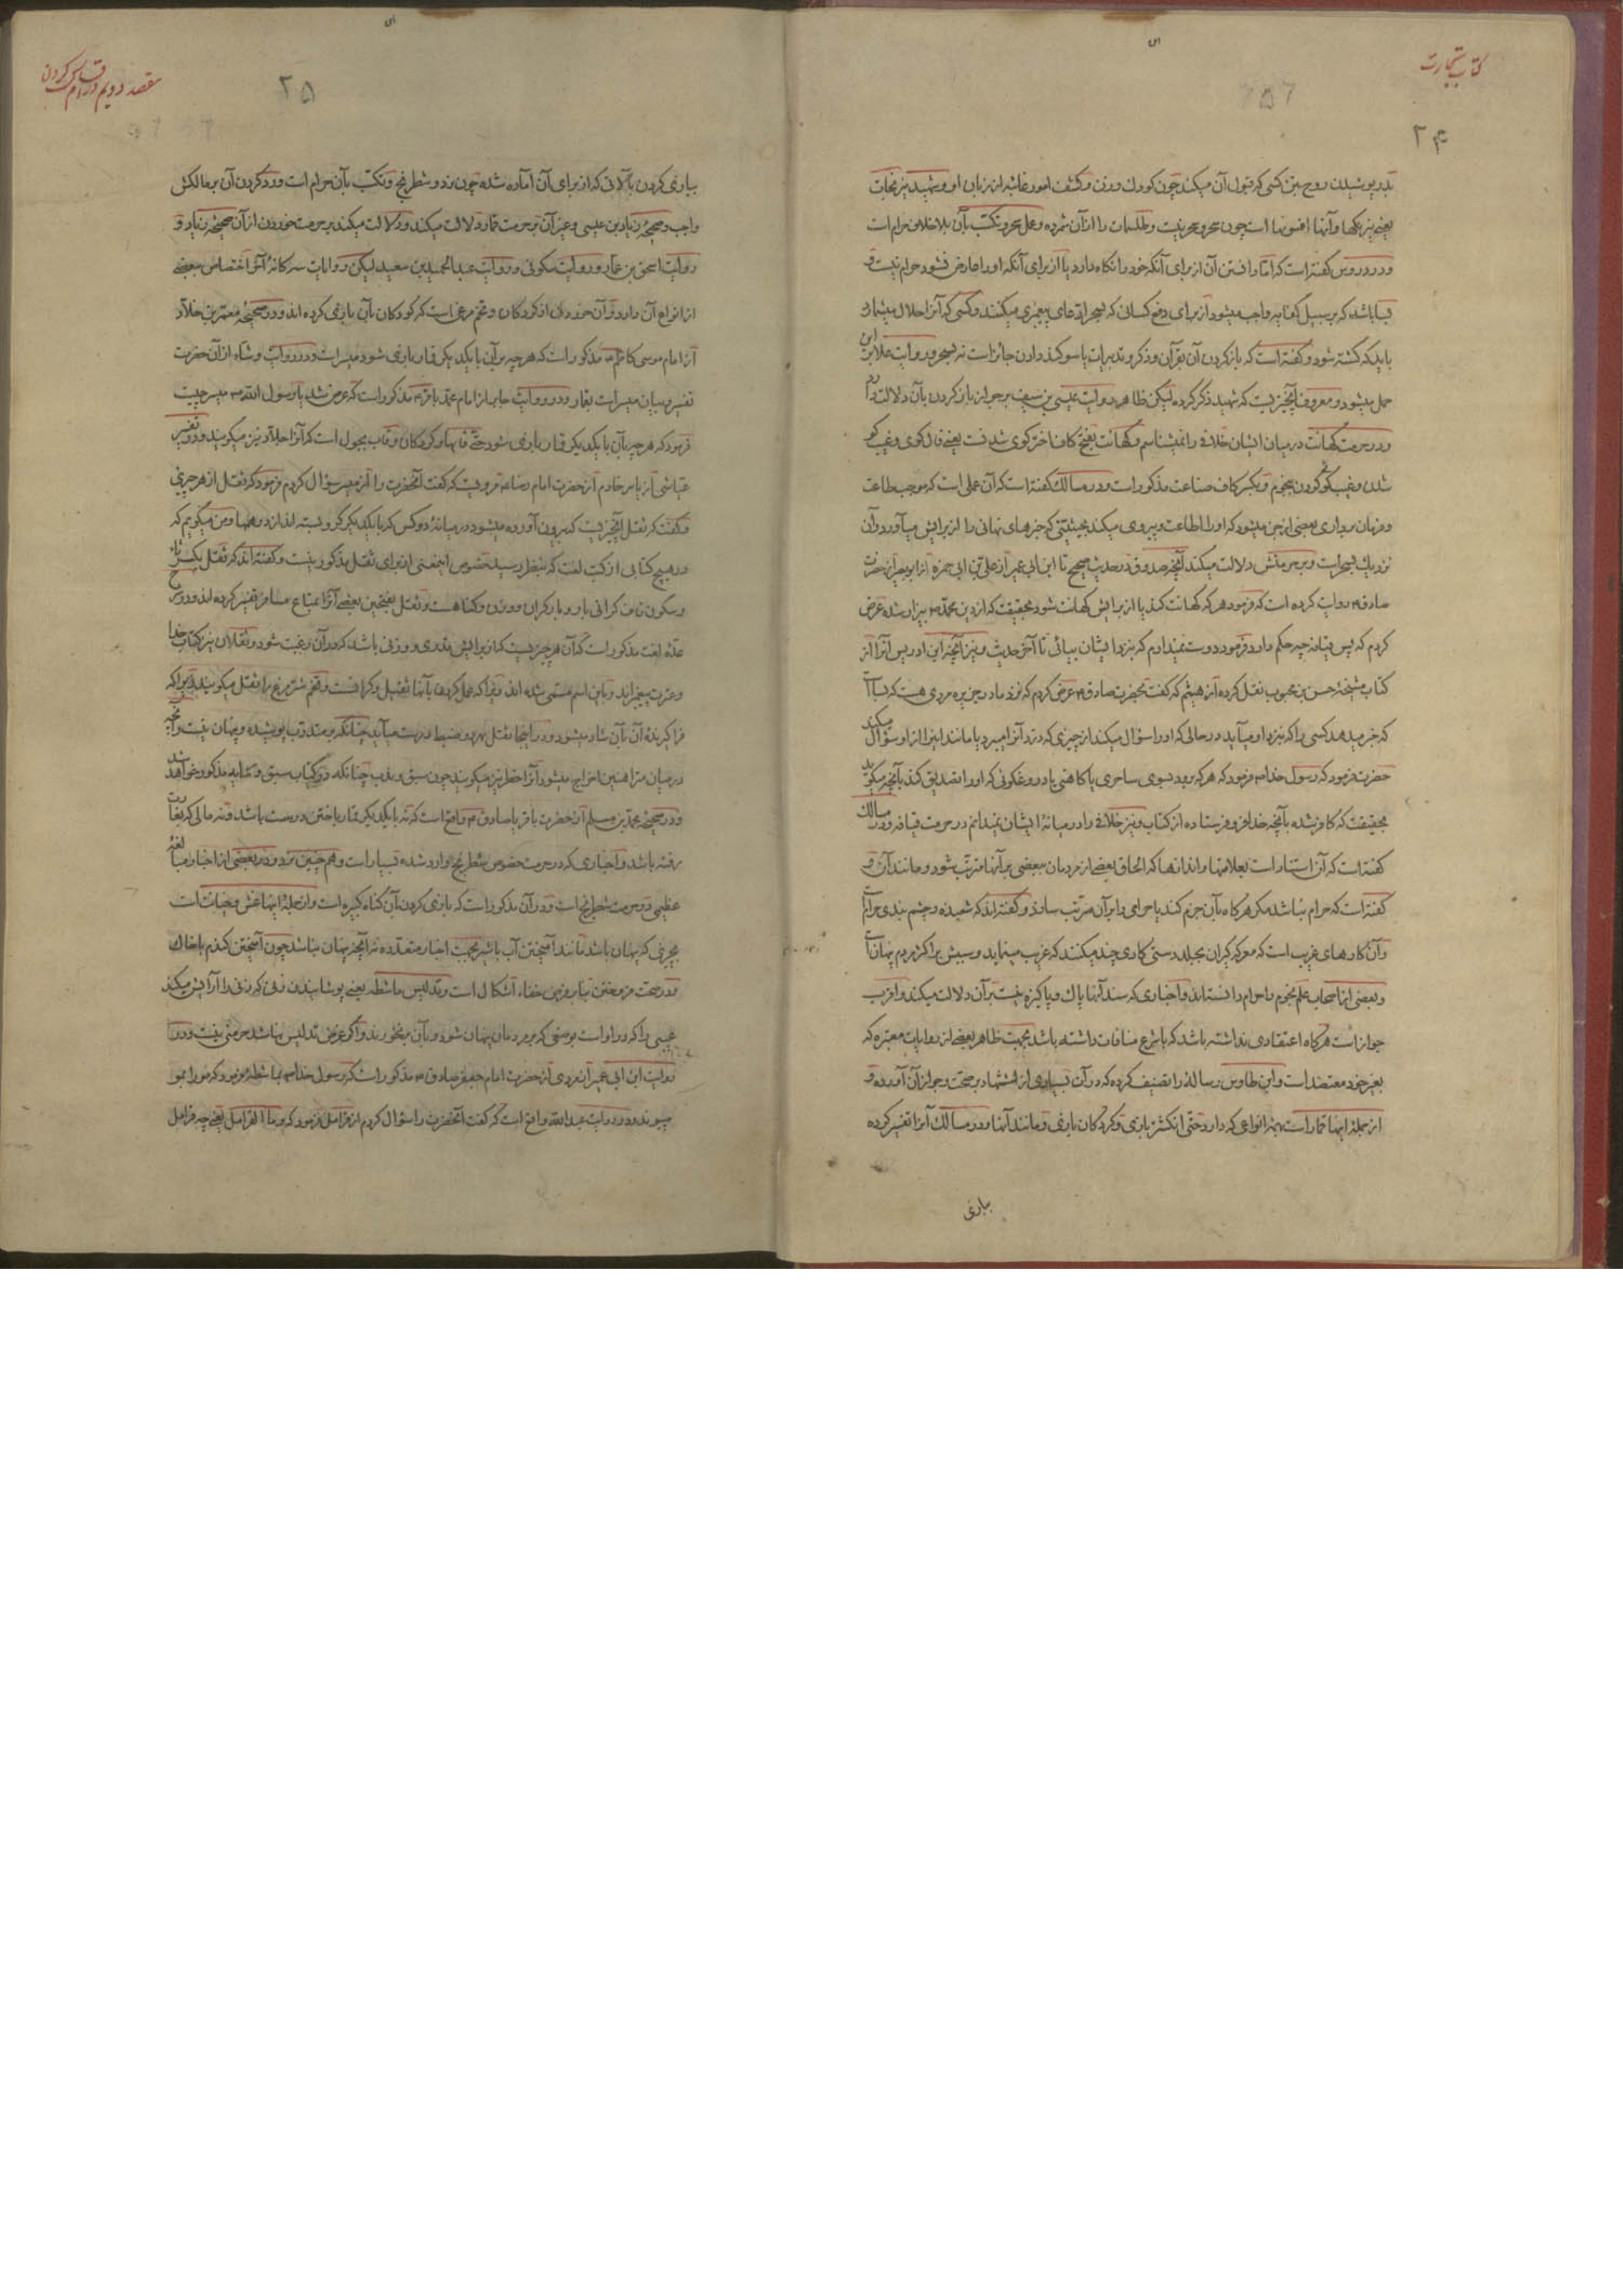 کتاب تجارت
۲۴
بدر پوشیدن روح بتن کسی که قبول آن میکند چون کودک و زن و کشف امور غائبه از زبان او و شهید نیرنجات
یعنی نیرنگها و آنها افسونها است چون سحر و سحر نیست و طلسمات را از آن شمرده و عمل سحر و تکسب بآن بلا خلاف حرام است
و در دروس گفته است که امّا یاد گرفتن آن از برای آنکه خود را نگاه دارد یا از برای آنکه او را عارض نشود حرام نیست و
بسا باشد که بر سبیل کفایه واجب میشود از برای دفع کسان که بسحر ادّعای پیغمبری میکنند و کسی که آنرا حلال میشمارد
باید که کشته شود و گفته است که باز کردن آن بقرآن و ذکر و تدبیرات یا سوگند دادن جائز است نه بسحر و روایت علا بر این
حمل میشود و معروف آنچیزیست که شهید ذکر کرده لیکن ظاهر روایت عیسی بن سیف بر جواز باز کردن بآن دلالت دارد
و در حرمت کهانت درمیان ایشان خلافی را نمیشناسم و کهانت بفتح کاف فاخترگوی شدنست یعنی فالگوی و غیب گو
شدن و غیب گوئی کردن بنجوم و بکسر کاف صناعت مذکور است و در مسالک گفته است که آن عملی است که موجب طاعت
و فرمان برداری بعضی از جن میشود که او را اطاعت و پیروی میکند بحیثیتی که خبرهای نهانی را از برایش میآورد و آن
نزدیک بسحر است و بر حرمتش دلالت میکند آنچه صدوق در حدیث صحیح تا ابن ابی عمیر از علی بن ابی حمزه از ابو بصیر از حضرت
صادق ع روایت کرده است که فرمود هر که کهانت کند یا از برایش کهانت شود بحقیقت که از دین محمّد ص بیزار شده عرض
کردم که پس قیافه چه حکم دارد فرمود دوست نمیدارم که بنزد ایشان بیائی تا آخر حدیث و نیز آنچه ابن ادریس آنرا از
کتاب مشیخهٔ حسن بن محبوب نقل کرده از هیثم که گفت بحضرت صادق ع عرض کردم که نزد ما در جزیره مردی هست که بسا است
که خبر میدهد کسی را که بنزد او میآید در حالی که او را سؤال میکند از چیزی که دزد آنرا میبرد یا مانند این را از او سؤال میکند
حضرت فرمود که رسول خدا ص فرمود که هر که برود بسوی ساحری یا کاهنی یا دروغگوئی که او را تصدیق کند بآنچه میگوید
بحقیقت که کافر شده بآنچه خدا فرو فرستاده از کتاب و نیز خلافی را درمیانهٔ ایشان نمیدانم در حرمت قیافه و در مسالک
گفته است که آن استناد است بعلامتها و اندازها که الحاق بعضی از مردمان ببعضی بر آنها مترتب شود و مانند آن و
گفته است که حرام نباشد مگر هر گاه بآن جزم کند یا حرامی را بر آن مترتب سازد و گفته اند که شعبده و چشم بندی حرامست
و آن کارهای غریب است که معرکه گیران بجلد دستی کاری چند میکنند که غریب مینماید و سببش بر اکثر مردم پنهان است
و بعضی از اصحاب علم نجوم را حرام دانسته اند و اخباری که سند آنها پاک و پاکیزه نیست بر آن دلالت میکند و اقرب
جواز است هر گاه اعتقادی نداشته باشد که با شرع منافات داشته باشد بجهت ظاهر بعضی از روایات معتبره که
بغیر خود معتضد است و ابن طاوس رساله را تصنیف کرده که در آن بسیاری از استشهاد بر صحّت و جواز آن آورده و
از جملهٔ اینها قمار است بهمه انواعی که دارد حتّی انگشتر بازی و گردکان بازی و مانند آنها و در مسالک آنرا تفسیر کرده
ببازی
مقصد دویم در اقسام کسب کردن
۲۵
ببازی کردن بآلاتی که از برای آن آماده شده چون نرد و شطرنج و تکسب بآن حرام است و رد کردن آن بر مالکش
واجب و صحیحهٔ زیاد بن عیسی و غیر آن بر حرمت قمار دلالت میکند و دلالت میکند بر حرمت خوردن از آن صحیحهٔ زیاد و
روایت اسحق بن عمّار و روایت سکونی و روایت عبد الحمید بن سعید لیکن روایات سه گانهٔ آخر اختصاص ببعضی
از انواع آن دارد و آن خوردن از گردکان و تخم مرغی است که کودکان بآن بازی کرده اند و در صحیحهٔ معمر بن خلّاد
از امام موسی کاظم ع مذکور است که هر چه بر آن با یکدیگر قمار بازی شود میسر است و در روایت وشاء از آن حضرت
تفسیر و بیان میسر است بقمار و در روایت جابر از امام محمّد باقر ع مذکور است که عرض شد یا رسول الله ص میسر چیست
فرمود که هر چه بآن با یکدیگر قمار بازی شود حتّی قابها و گردکان و قاب بجول است که آنرا حلاد نیز میگویند و در تفسیر
عیاشی از یاسر خادم از حضرت امام رضا ع مرویست که گفت آنحضرت را از میسر سؤال کردم فرمود که ثقل از هر چیزی
و گفت که ثقل آنچیزیست که بیرون آورده میشود درمیانهٔ دو کس که با یکدیگر گرو بسته اند از درهمها و من میگویم که
در هیچ کتابی از کتب لغت که بنظر رسید بخصوص اینمعنی از برای ثقل مذکور نیست و گفته اند که ثقل بکسر ثاء
و سکون قاف گرانی بار و بار گران و وزن و گناهست و ثقل بفتحین بعضی آنرا بمتاع مسافر تفسیر کرده اند و در بر خ
عدّه لغت مذکور است که آن هر چیزیست که از برایش قدری و وزنی باشد که در آن رغبت شود و ثقلان نیز کتاب خدا
و عترت پیغمبراند و باین اسم مسمّی شده اند چرا که عمل کردن بآنها ثقیل و گرانست و تخم شتر مرغ را ثقل میگویند چرا که
فرا گیرندهٔ آن بآن شاد میشود و در اینجا ثقل بهر دو ضبط درست میآید چنانکه بر متدرّب پوشیده و پنهان نیست و آنچه
درمیان متراهنین اخراج میشود آنرا خطر نیز میگویند چون سبق و ندب چنانکه در کتاب سبق و رمایه مذکور خواهد شد
و در صحیحهٔ محمّد بن مسلم از حضرت باقر یا صادق ع واقع است که نه با یکدیگر قمار باختن درست باشد و نه مالی که بغارت
رفته باشد و اخباری که در حرمت خصوص شطرنج وارد شده بسیار است و هم چنین نرد و در بعضی از اخبار مبالغهٔ
عظیمی در حرمت شطرنج است و در آن مذکور است که بازی کردن بآن گناه کبیره است و از جملهٔ اینها غش و خیانت است
بچیزی که پنهان باشد مانند آمیختن آب با شیر بجهت اخبار متعدّده نه آنچه پنهان نباشد چون آمیختن گندم با خاک
و در حرمت فروختن بتاریکی خفاء اشکال است و تدلیس ماشطه یعنی پوشانیدن زنی که زنی را آرایش میکند
عیبی را که در او است بوصفی که بر مردمان پنهان شود و بآن بر نخورند و اگر غرض تدلیس نباشد حرمتی نیست و در
روایت ابن ابی عمیر از مردی از حضرت امام جعفر صادق ع مذکور است که رسول خدا ص بماشطه فرمود که مو را بمو
میوند و در روایت عبد الله واقع است که گفت آنحضرت را سؤال کردم از قرامل فرمود که و ما القرامل یعنی چه قرامل